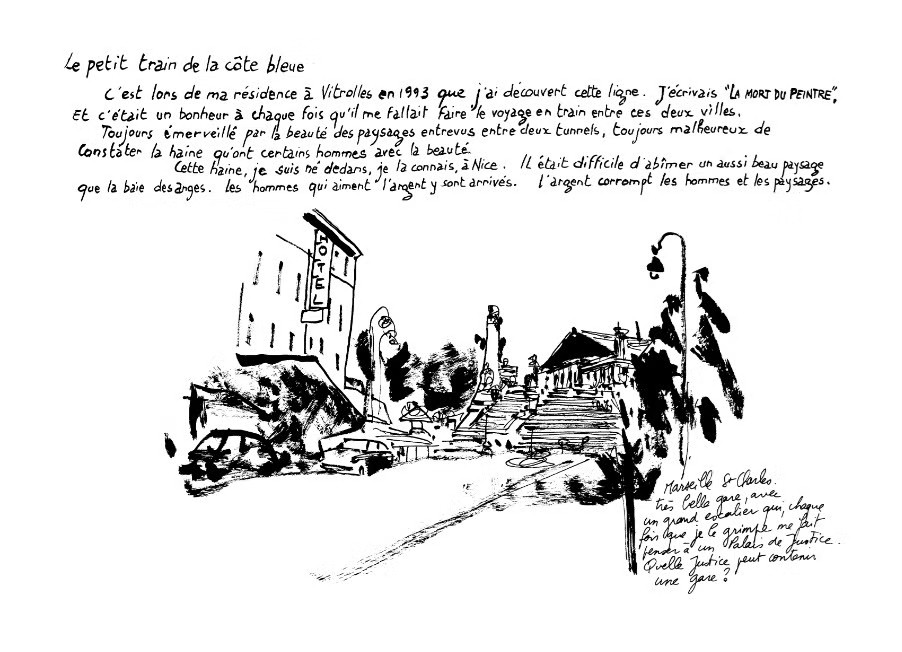 Le petit train de la côte bleue
C'est lors de ma résidence à Vitrolles en 1993 que j'ai découvert cette ligne. J'écrivais "LA MORT DU PEINTRE",
Et c'était un bonheur à chaque fois qu'il me fallait faire le voyage en train entre ces deux villes.
Toujours émerveillé par la beauté des paysages entrevus entre deux tunnels, toujours malheureux de
constater la haine qu'ont certains hommes avec la beauté.
Cette haine, je suis né dedans, je la connais, à Nice. Il était difficile d'abîmer un aussi beau paysage
que la baie des anges. Les hommes qui aiment l'argent y sont arrivés. L'argent corrompt les hommes et les paysages.
HOTEL
Marseille St Charles.
très belle gare, avec
un grand escalier qui, chaque
fois que je le grimpe me fait
penser à un Palais de Justice.
Quelle Justice peut contenir
une gare ?